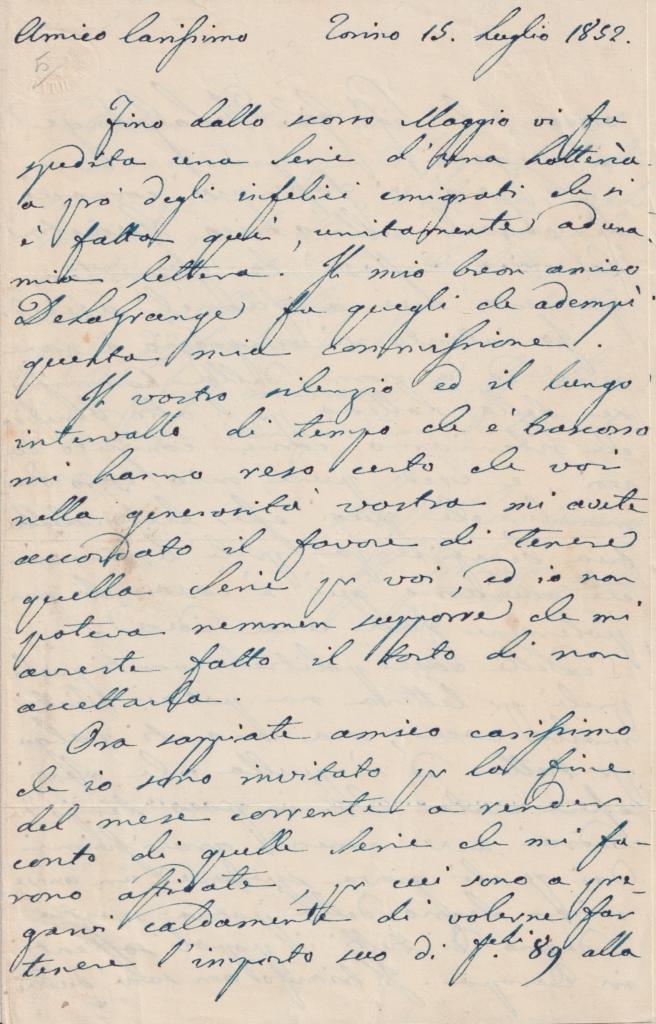 Amico Carissimo Torino 15. Luglio 1852.
Fino dallo scorso Maggio vi fu
spedita una Serie d'una Lotteria
a pro' degli infelici emigrati che si
è fatta quì, unitamente ad una
mia lettera. Il mio buon amico
DeLaGrange fu quegli che adempì
questa mia commissione.
Il vostro silenzio ed il lungo
intervallo di tempo che è trascorso
mi hanno reso certo che voi
nella generosità vostra mi avete
accordato il favore di tenere
quella Serie pr voi, ed io non
poteva nemmen supporre che mi
avreste fatto il torto di non
accettarla.
Ora sappiate amico carissimo
che io sono invitato pr la fine
del mese corrente a render
conto di quelle Serie che mi fu-
rono affidate, pr cui sono a pre-
garvi caldamente di volerne far
tenere l'importo suo di 89 alla